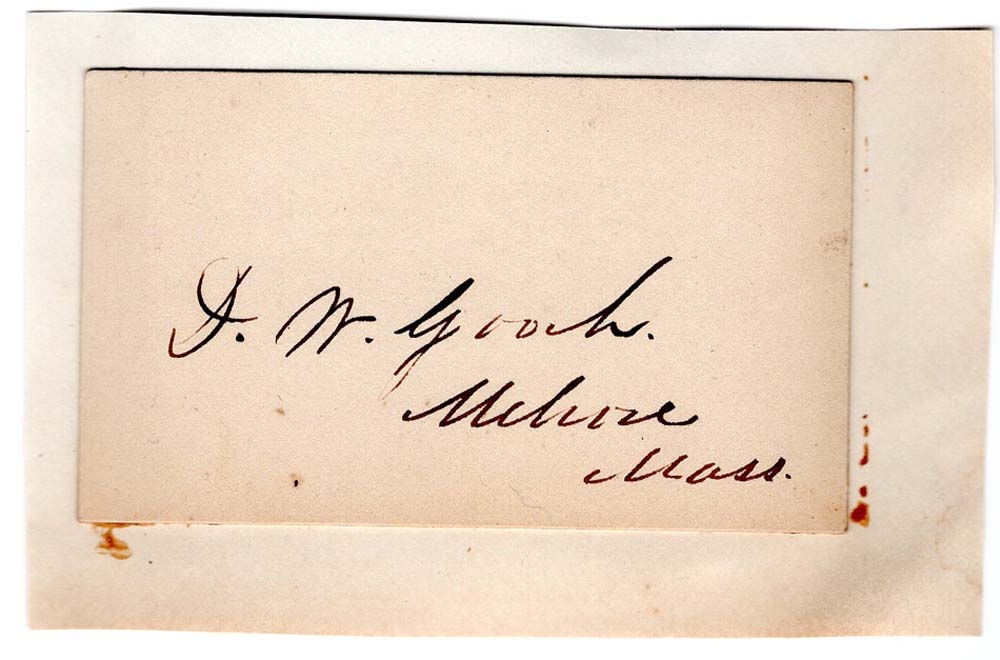 D. W. Gooch.
Melrose
Mass.